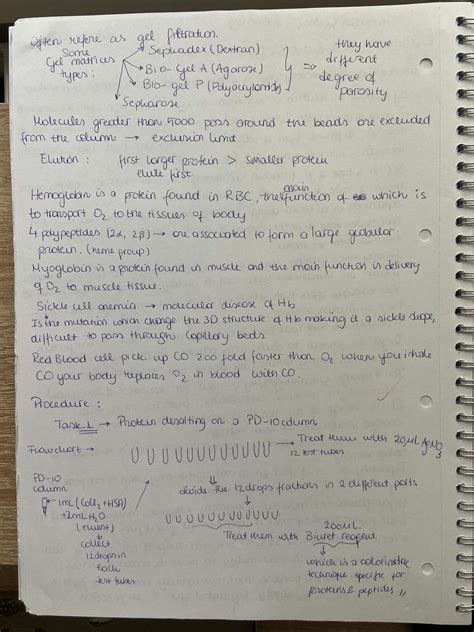 Often refere as gel filtration.
Some
Gel matrices
types:
Sephadex (Dextran)
Bio-Gel A (Agarose)
Bio-gel P (Polyacrylamide)
Sepharose
⇒ they have
different
degree of
porosity
Molecules greater than 5000 pass around the beads are excluded
from the column → exclusion limit
Elution: first larger protein > smaller protein
elute first
Hemoglobin is a protein found in RBC, the main function of which is
to transport O2 to the tissues of body
4 polypeptides (2α, 2β) → are associated to form a large globular
protein. (heme group)
Myoglobin is a protein found in muscle and the main function is delivery
of O2 to muscle tissue.
Sickle cell anemia → molecular disease of Hb
Is the mutation which change the 3D structure of Hb making it a sickle shape,
difficult to pass through capillary beds.
Red Blood cell pick up CO 200 fold faster than O2 when you inhale
CO your body replaces O2 in blood with CO.
Procedure:
Task 1 → Protein desalting on a PD-10 column
Flowchart →
→ Treat them with 20μL AgNO3
12 test tubes
PD-10
column
1mL (CoCl2 + HSA)
+2mL H2O
(eluent)
collect
12 drops in
each
test tubes
divide the 12 drops fractions in 2 different parts
Treat them with 200μL
Biuret reagent
which is a colorimetric
technique specific for
proteins & peptides